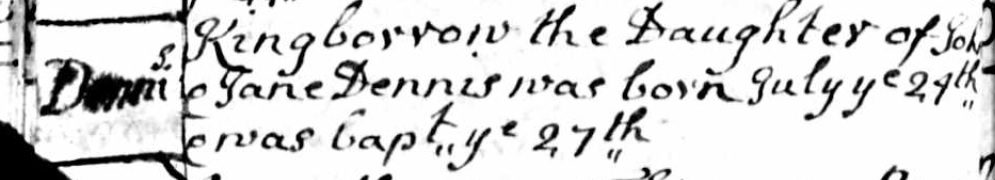 Kingborrow the Daughter of Joh
Dennis. & Jane Dennis was born July ye 24th
& was bapt. ye 27th